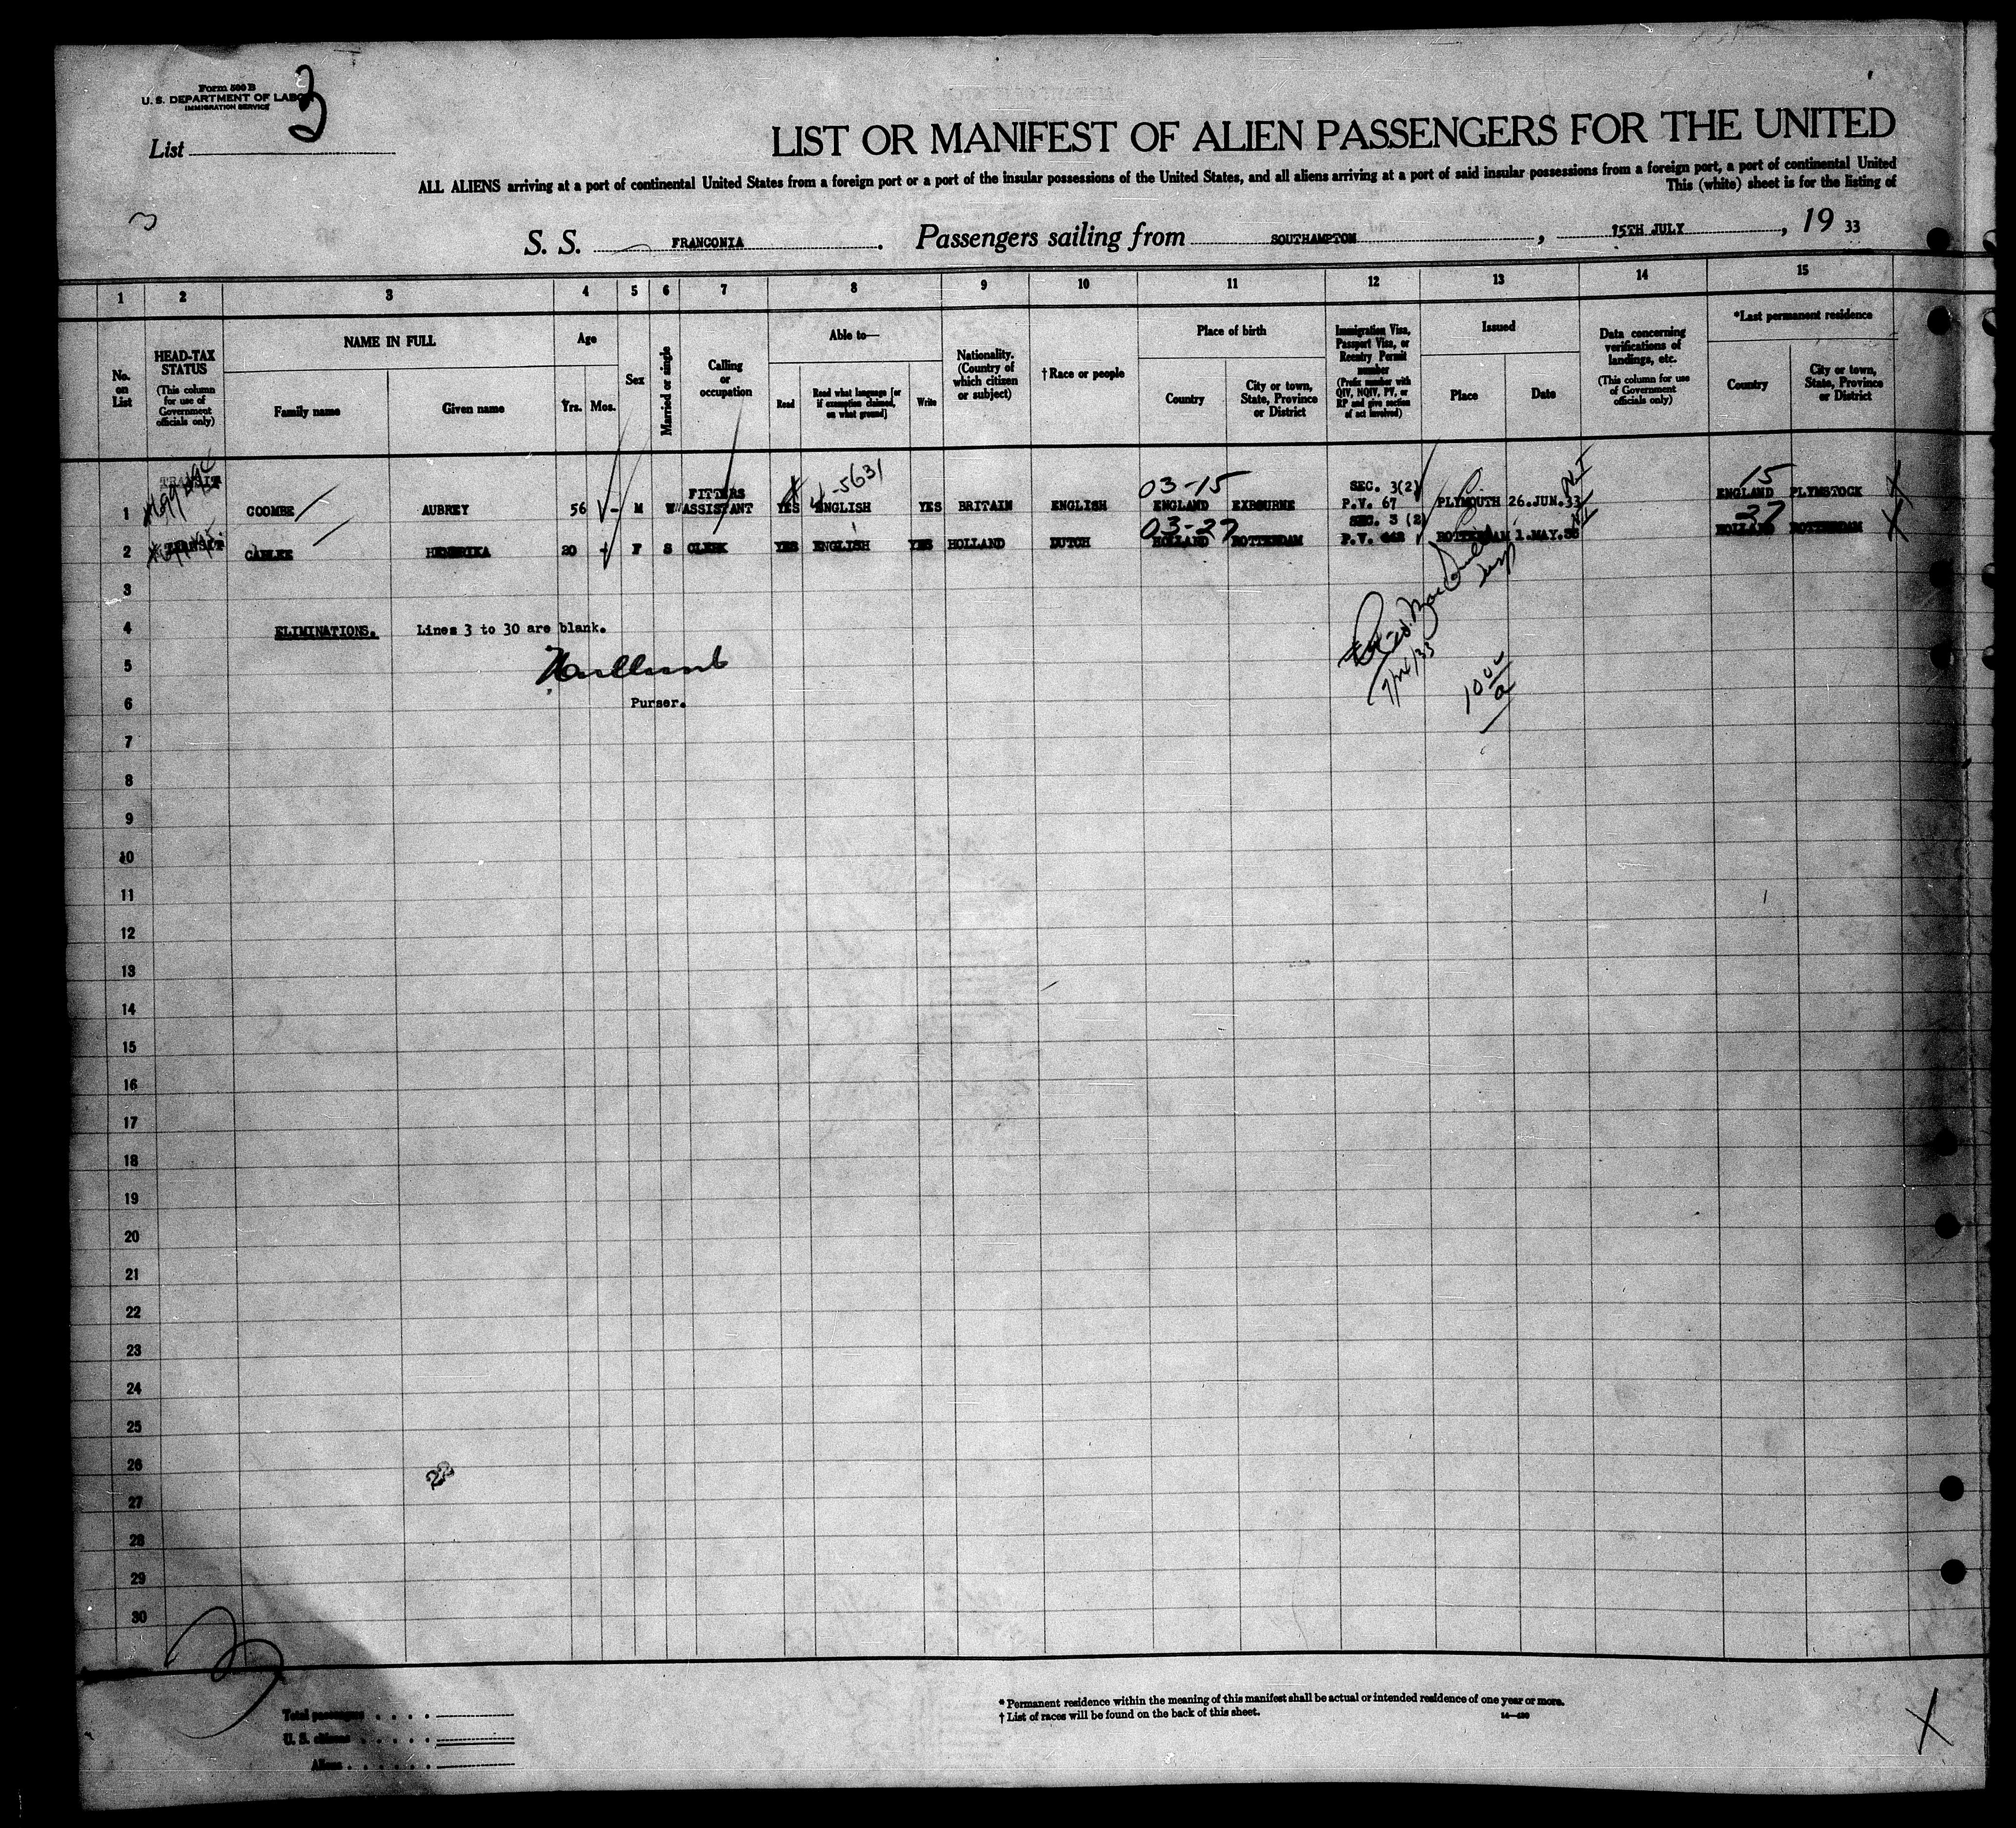 Form 500 B
U. S. DEPARTMENT OF LABOR
IMMIGRATION SERVICE
3
List
LIST OR MANIFEST OF ALIEN PASSENGERS FOR THE UNITED
ALL ALIENS arriving at a port of continental United States from a foreign port or a port of the insular possessions of the United States, and all aliens arriving at a port of said insular possessions from a foreign port, a port of continental United
This (white) sheet is for the listing of
3
S. S. FRANCONIA. Passengers sailing from SOUTHAMPTON, 15TH JULY, 19 33
1 2 3 4 5 6 7 8 9 10 11 12 13 14 15
No. on List
HEAD-TAX STATUS
(This column for use of Government officials only)
NAME IN FULL
Family name
Given name
Age
Yrs. Mos.
Sex
Married or single
Calling or occupation
Able to—
Read
Read what language [or if exemption claimed, on what ground]
Write
Nationality. (Country of which citizen or subject)
† Race or people
Place of birth
Country
City or town, State, Province or District
Immigration Visa, Passport Visa, or Reentry Permit number
(Prefix number with QIV, NQIV, PV, or RP and give section of act involved)
Issued
Place
Date
Data concerning verifications of landings, etc.
(This column for use of Government officials only)
*Last permanent residence
Country
City or town, State, Province or District
TRANSIT
4-5631
03-15
SEC. 3(2)
15
1 COOMBE AUBREY 56 - M W FITTERS ASSISTANT YES ENGLISH YES BRITAIN ENGLISH ENGLAND EXBOURNE P.V. 67 PLYMOUTH 26.JUN.33 ENGLAND PLYMSTOCK
TRANSIT
03-27
SEC. 3 (2)
27
2 HENDRIKA 20 - F S CLERK YES ENGLISH YES HOLLAND DUTCH HOLLAND ROTTERDAM P.V. ROTTERDAM 1.MAY.33 HOLLAND ROTTERDAM
3
4 ELIMINATIONS. Lines 3 to 30 are blank.
5
6 Purser.
7
8
9
10
11
12
13
14
15
16
17
18
19
20
21
22
23
24
25
26
27
28
29
30
Total passengers
U. S. citizens
Aliens
* Permanent residence within the meaning of this manifest shall be actual or intended residence of one year or more.
† List of races will be found on the back of this sheet.
X